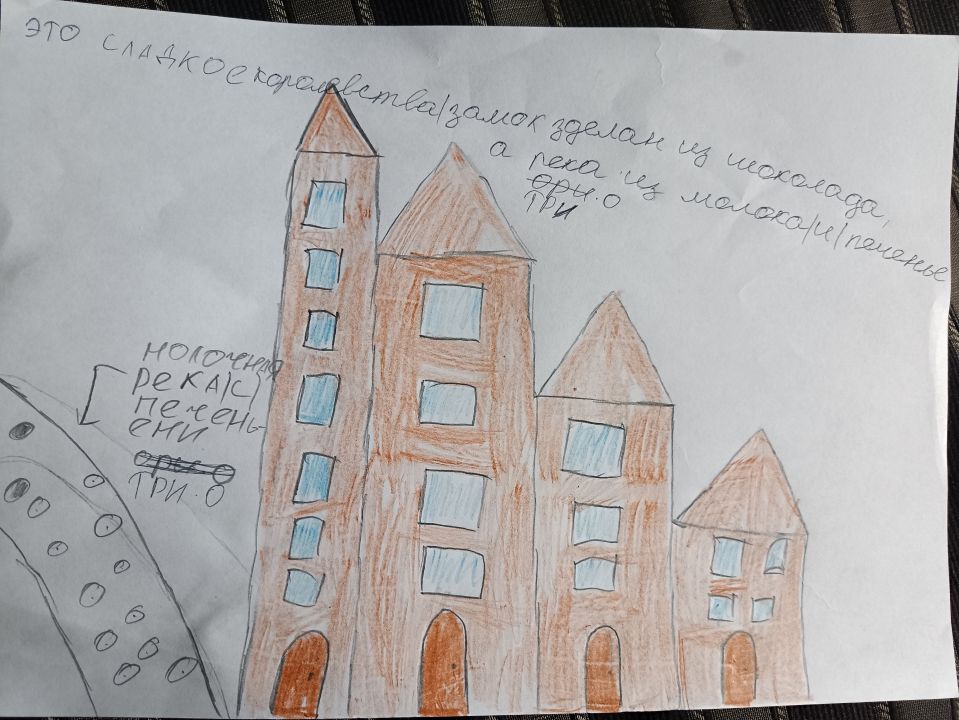 ЭТО СЛАДКОЕ королевства/замок зделан из шоколада,
а река из молока/и/печенье
ори.о
ТРИ
МОЛОЧЕНАЯ
РЕКА/С/
ПЕЧЕНЬ-
ЕНИ
ори о
ТРИ.О